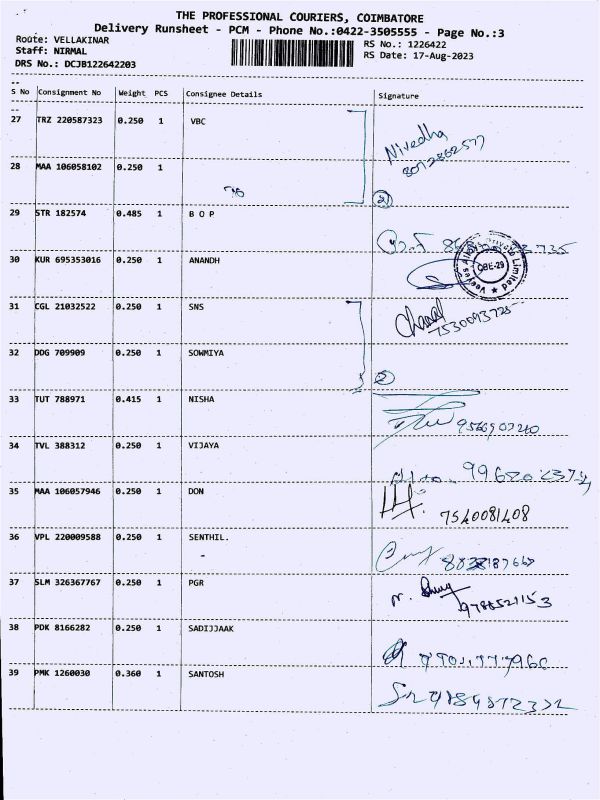 THE PROFESSIONAL COURIERS, COIMBATORE
Delivery Runsheet - PCM - Phone No.:0422-3505555 - Page No.:3
Route: VELLAKINAR
RS No.: 1226422
Staff: NIRMAL
RS Date: 17-Aug-2023
DRS No.: DCJB122642203
S No Consignment No Weight PCS Consignee Details Signature
27 TRZ 220587323 0.250 1 VBC
Nivedha
28 MAA 106058102 0.250 1
2
29 STR 182574 0.485 1 B O P
30 KUR 695353016 0.250 1 ANANDH
CBE-29
Private Limited
31 CGL 21032522 0.250 1 SNS
7530093725
32 DDG 709909 0.250 1 SOWMIYA
2
33 TUT 788971 0.415 1 NISHA
34 TVL 388312 0.250 1 VIJAYA
35 MAA 106057946 0.250 1 DON
7540081408
36 VPL 220009588 0.250 1 SENTHIL.
37 SLM 326367767 0.250 1 PGR
9788521153
38 PDK 8166282 0.250 1 SADIJJAAK
39 PMK 1260030 0.360 1 SANTOSH